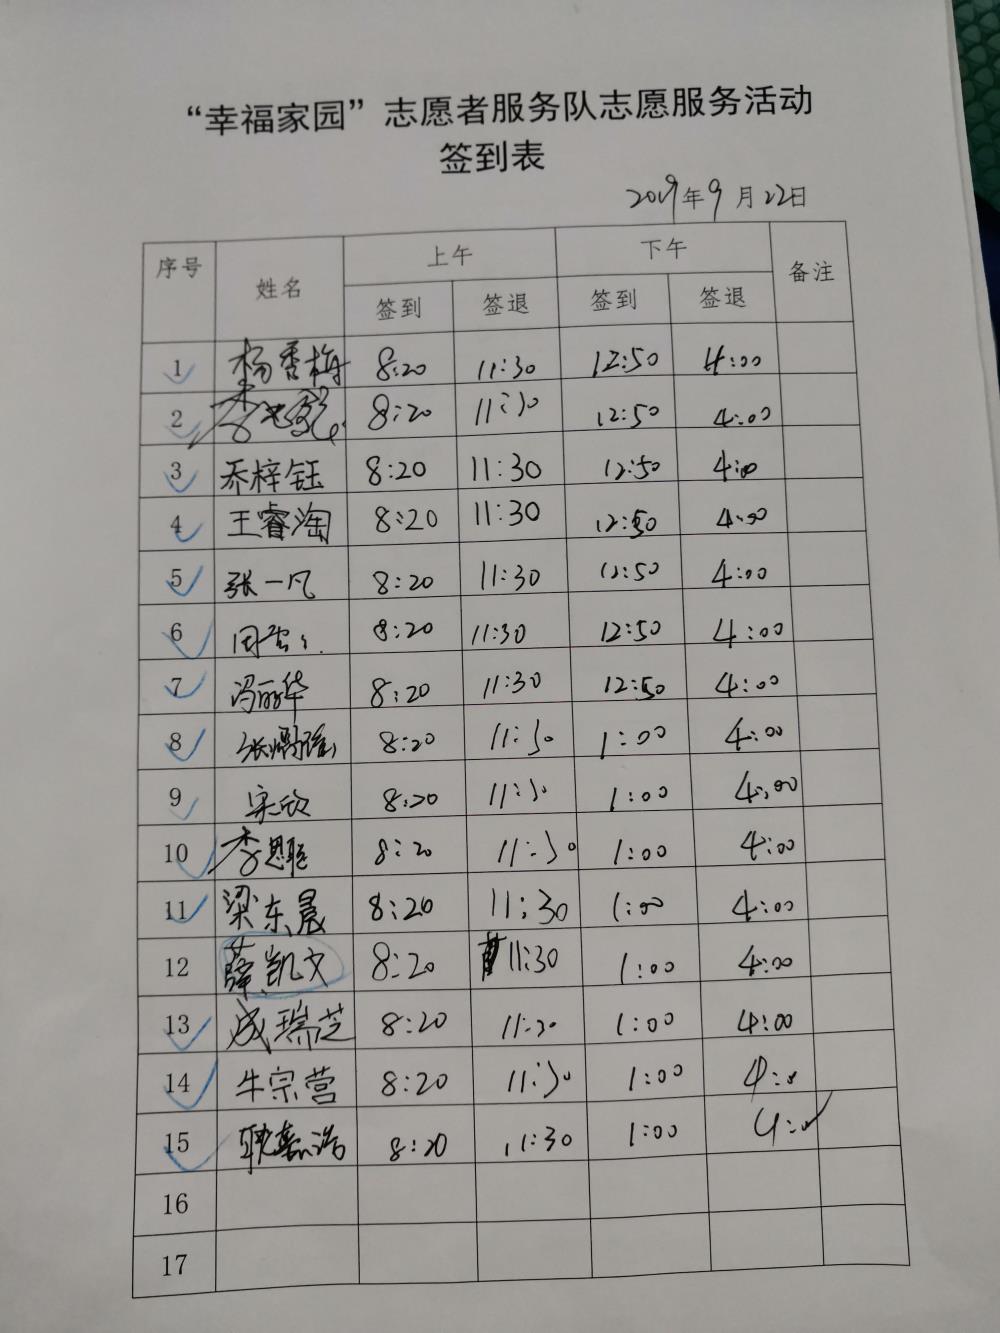 “幸福家园”志愿者服务队志愿服务活动
签到表
2019年9月22日
序号 姓名 上午 下午 备注
签到 签退 签到 签退
1 杨香梅 8:20 11:30 12:50 4:00
2 8:20 11:30 12:50 4:00
3 乔梓钰 8:20 11:30 12:50 4:00
4 王睿淘 8:20 11:30 12:50 4:00
5 张一凡 8:20 11:30 12:50 4:00
6 8:20 11:30 12:50 4:00
7 冯丽华 8:20 11:30 12:50 4:00
8 8:20 11:30 1:00 4:00
9 宋欣 8:20 11:30 1:00 4:00
10 8:20 11:30 1:00 4:00
11 梁东晨 8:20 11:30 1:00 4:00
12 薛凯文 8:20 11:30 1:00 4:00
13 成瑞芝 8:20 11:30 1:00 4:00
14 牛宗营 8:20 11:30 1:00 4:0
15 8:20 11:30 1:00 4:0
16
17